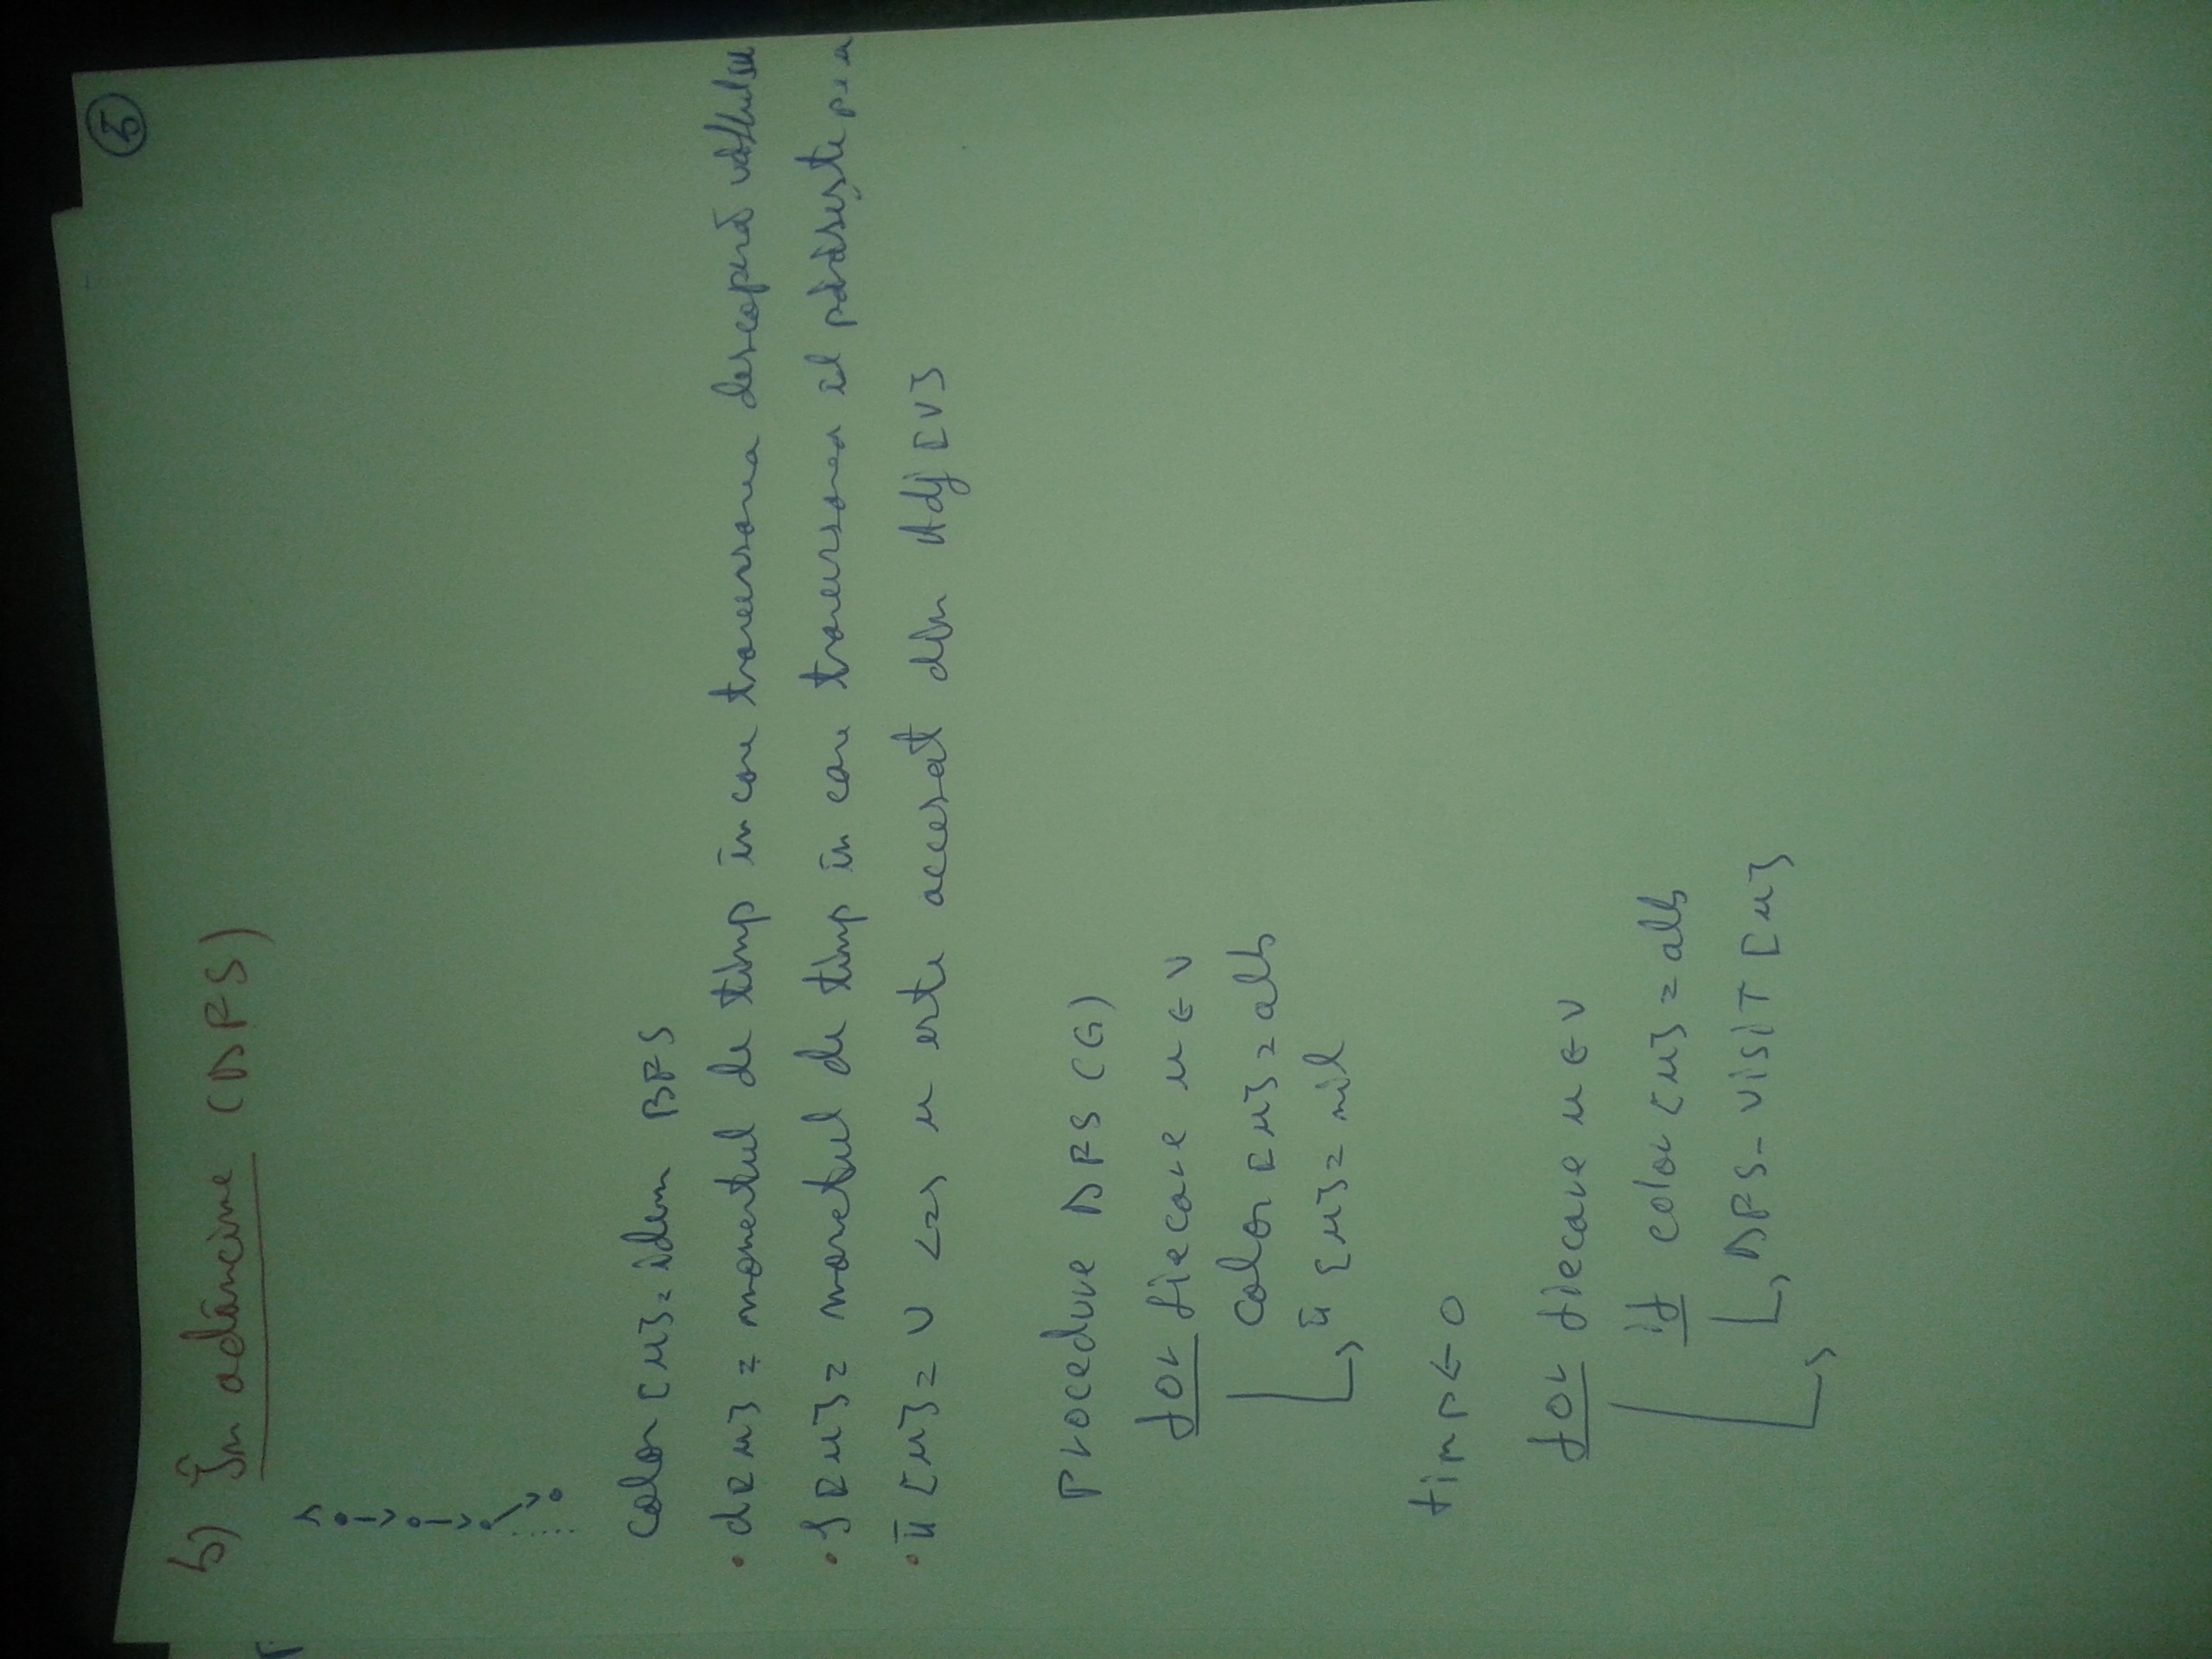 5
b) În adâncime (DFS)
s
color [u] = idem BFS
• d[u] = momentul de timp în care traversarea descoperă vârful u
• f[u] = momentul de timp în care traversarea îl părăsește pe u
• π[u] = v <=> u este accesat din Adj[v]
Procedure DFS (G)
for fiecare u ∈ V
color [u] = alb
π [u] = nil
timp ← 0
for fiecare u ∈ V
if color [u] = alb
DFS-VISIT [u]